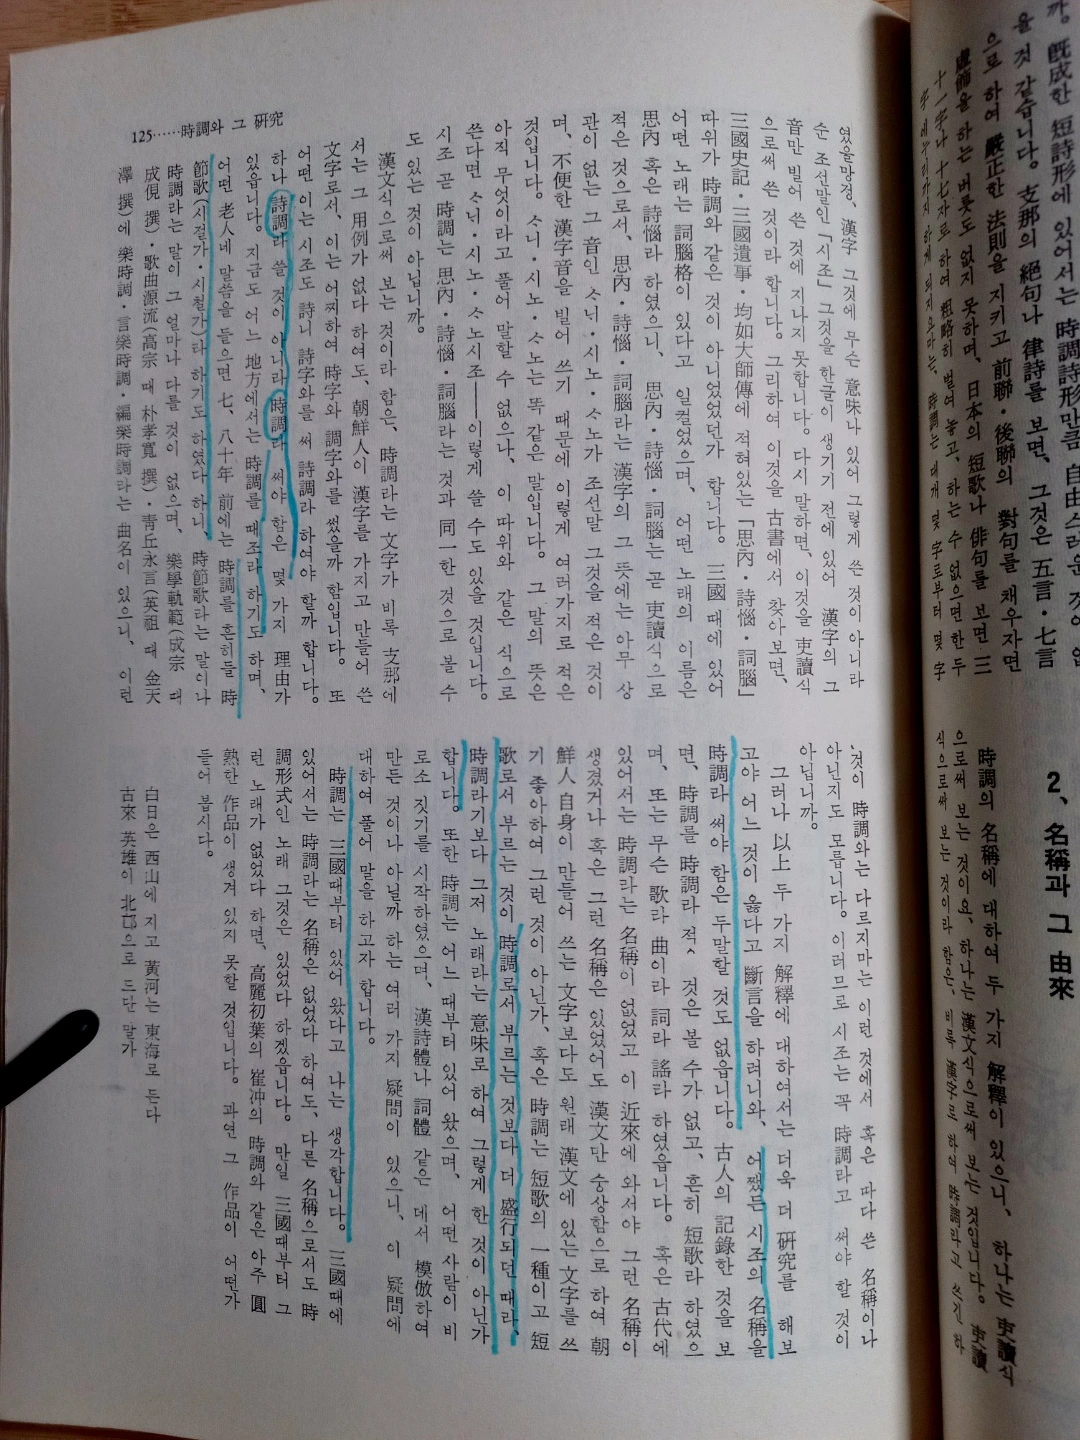 까. 旣成한 短詩形에 있어서는 時調詩形만큼 自由스러운 것이 없
을 것 같습니다. 支那의 絕句나 律詩를 보면, 그것은 五言·七言
으로 하여 嚴正한 法則을 지키고 前聯·後聯의 對句를 채우자면
虛飾을 하는 버릇도 없지 못하며, 日本의 短歌나 俳句를 보면 三
十一字나 十七字로 하여 粗略히 벌여 놓고, 하는 수 없으면 한두
字 에누리까지 하게 되지요마는, 時調는 대개 몇 字로부터 몇 字
2、名稱과 그 由來
時調의 名稱에 대하여 두 가지 解釋이 있으니, 하나는 吏讀식
으로써 보는 것이요, 하나는 漢文식으로써 보는 것입니다. 吏讀
식으로써 보는 것이라 함은, 비록 漢字로 하여 時調라고 쓰긴 하
125……時調와 그 硏究
였을망정, 漢字 그것에 무슨 意味나 있어 그렇게 쓴 것이 아니라
순 조선말인「시조」그것을 한글이 생기기 전에 있어 漢字의 그
音만 빌어 쓴 것에 지나지 못합니다. 다시 말하면, 이것을 吏讀식
으로써 쓴 것이라 합니다. 그리하여 이것을 古書에서 찾아보면,
三國史記·三國遺事·均如大師傳에 적혀있는「思內·詩惱·詞腦」
따위가 時調와 같은 것이 아니었었던가 합니다. 三國 때에 있어
어떤 노래는 詞腦格이 있다고 일컬었으며, 어떤 노래의 이름은
思內 혹은 詩惱라 하였으니, 思內·詩惱·詞腦는 곧 吏讀식으로
적은 것으로서, 思內·詩惱·詞腦라는 漢字의 그 뜻에는 아무 상
관이 없는 그 音인 ᄉᆞ늬·시노·ᄉᆞ노가 조선말 그것을 적은 것이
며, 不便한 漢字音을 빌어 쓰기 때문에 이렇게 여러가지로 적은
것입니다. ᄉᆞ늬·시노·ᄉᆞ노는 똑 같은 말입니다. 그 말의 뜻은
아직 무엇이라고 풀어 말할 수 없으나, 이 따위와 같은 식으로
쓴다면 ᄉᆞ늬·시노·ᄉᆞ노시조──이렇게 쓸 수도 있을 것입니다.
시조 곧 時調는 思內·詩惱·詞腦라는 것과 同一한 것으로 볼 수
도 있는 것이 아닙니까.
漢文식으로써 보는 것이라 함은, 時調라는 文字가 비록 支那에
서는 그 用例가 없다 하여도, 朝鮮人이 漢字를 가지고 만들어 쓴
文字로서, 이는 어찌하여 時字와 調字와를 썼을까 함입니다. 또
어떤 이는 시조도 詩니 詩字와를 써 詩調라 하여야 할까 합니다.
하나 詩調라 쓸 것이 아니라 時調라 써야 함은 몇 가지 理由가
있읍니다. 지금도 어느 地方에서는 時調를 때조라 하기도 하며,
어떤 老人네 말씀을 들으면 七、八十年 前에는 時調를 흔히들 時
節歌(시절가·시철가)라 하기도 하였다 하니, 時節歌라는 말이나
時調라는 말이 그 얼마나 다를 것이 없으며, 樂學軌範(成宗 때
成俔 撰)·歌曲源流(高宗 때 朴孝寬 撰)·靑丘永言(英祖 때 金天
澤 撰)에 樂時調·言樂時調·編樂時調라는 曲名이 있으니, 이런
것이 時調와는 다르지마는 이런 것에서 혹은 따다 쓴 名稱이나
아닌지도 모릅니다. 이러므로 시조는 꼭 時調라고 써야 할 것이
아닙니까.
그러나 以上 두 가지 解釋에 대하여서는 더욱 더 硏究를 해보
고야 어느 것이 옳다고 斷言을 하려니와, 어쨌든 시조의 名稱을
時調라 써야 함은 두말할 것도 없읍니다. 古人의 記錄한 것을 보
면, 時調를 時調라 적은 것은 볼 수가 없고, 흔히 短歌라 하였으
며, 또는 무슨 歌라 曲이라 詞라 謠라 하였읍니다. 혹은 古代에
있어서는 時調라는 名稱이 없었고 이 近來에 와서야 그런 名稱이
생겼거나 혹은 그런 名稱은 있었어도 漢文만 숭상함으로 하여 朝
鮮人 自身이 만들어 쓰는 文字보다도 원래 漢文에 있는 文字를 쓰
기 좋아하여 그런 것이 아닌가, 혹은 時調는 短歌의 一種이고 短
歌로서 부르는 것이 時調로서 부르는 것보다 더 盛行되던 때라,
時調라기보다 그저 노래라는 意味로 하여 그렇게 한 것이 아닌가
합니다. 또한 時調는 어느 때부터 있어 왔으며, 어떤 사람이 비
로소 짓기를 시작하였으며, 漢詩體나 詞體 같은 데서 模倣하여
만든 것이나 아닐까 하는 여러 가지 疑問이 있으니, 이 疑問에
대하여 풀어 말을 하고자 합니다.
時調는 三國때부터 있어 왔다고 나는 생각합니다. 三國때에
있어서는 時調라는 名稱은 없었다 하여도, 다른 名稱으로서도 時
調形式인 노래 그것은 있었다 하겠읍니다. 만일 三國때부터 그
런 노래가 없었다 하면, 高麗初葉의 崔冲의 時調와 같은 아주 圓
熟한 作品이 생겨 있지 못할 것입니다. 과연 그 作品이 어떤가
들어 봅시다.
白日은 西山에 지고 黃河는 東海로 든다
古來 英雄이 北邙으로 드단 말가